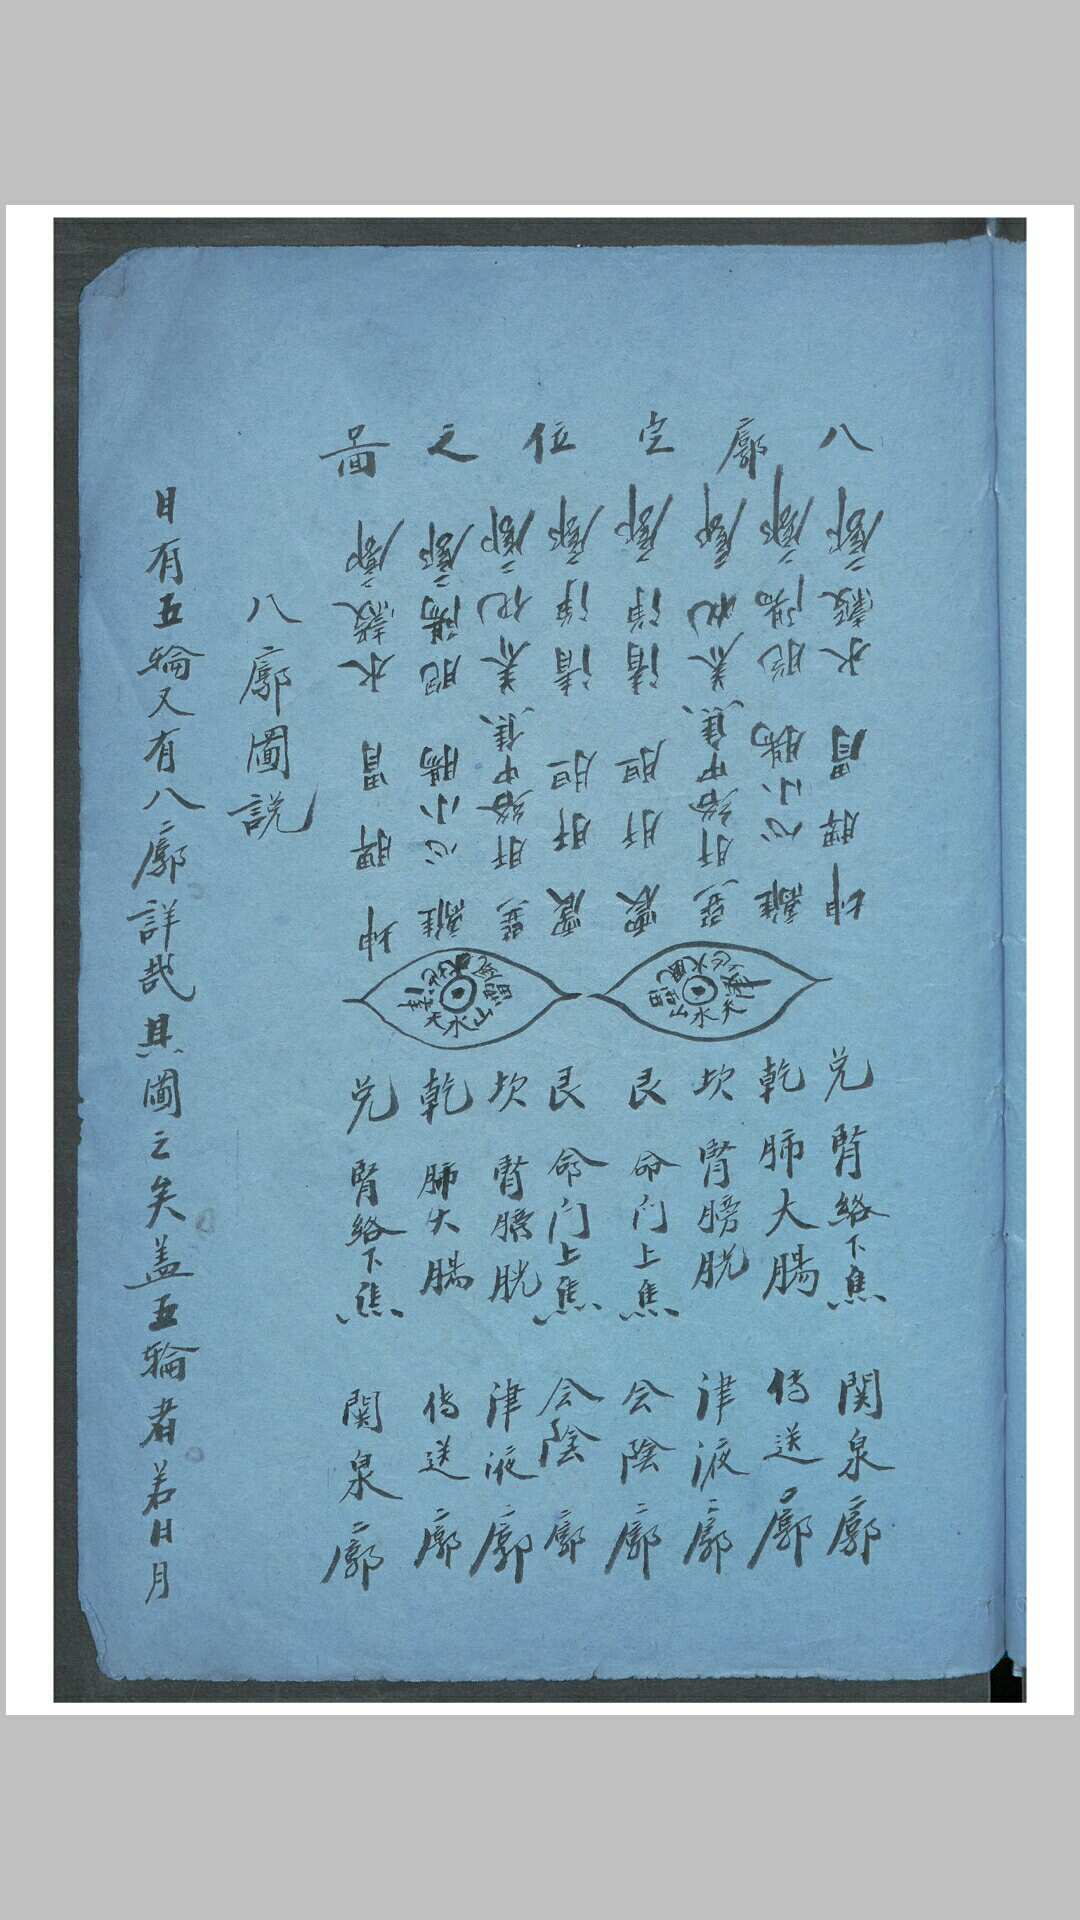 八廓定位之啚
坤脾胃水穀廓
離心小腸胞陽廓
巽肝絡中焦养化廓
震肝胆清淨廓
震肝胆清淨廓
巽肝絡中焦养化廓
離心小腸胞陽廓
坤脾胃水穀廓
火風雷山水天
地火風雷山水天澤
兑腎絡下焦関泉廓
乾肺大腸傳送廓
坎腎膀胱津液廓
艮命门上焦会陰廓
艮命门上焦会陰廓
坎腎膀胱津液廓
乾肺大腸傳送廓
兑腎絡下焦関泉廓
八廓圖説
目有五輪又有八廓詳哉其圖之矣盖五輪者若日月